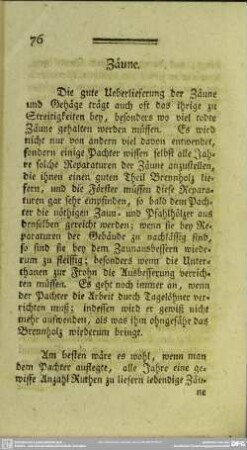 76
Zäune.
Die gute Ueberlieferung der Zäune
und Gehäge trägt auch oft das ihrige zu
Streitigkeiten bey, besonders wo viel todte
Zäune gehalten werden müssen. Es wird
nicht nur von andern viel davon entwendet,
sondern einige Pachter wissen selbst alle Jah-
re solche Reparaturen der Zäune anzustellen,
die ihnen einen guten Theil Brennholz lie-
fern, und die Förster müssen diese Repara-
turen gar sehr empfinden, so bald dem Pach-
ter die nöthigen Zaun- und Pfahlhölzer aus
denselben gereicht werden; wenn sie bey Re-
paraturen der Gebäude zu nachläßig sind,
so sind sie bey dem Zaunausbessern wiede-
rum zu fleissig; besonders wenn die Unter-
thanen zur Frohn die Ausbesserung verrich-
ten müssen. Es geht noch immer an, wenn
der Pachter die Arbeit durch Tagelöhner ver-
richten muß; indessen wird er gewiß nicht
mehr aufwenden, als was ihm ohngefähr das
Brennholz wiederum bringt.
Am besten wäre es wohl, wenn man
dem Pachter auflegte, alle Jahre eine ge-
wisse Anzahl Ruthen zu liefern lebendige Zäu-
ne